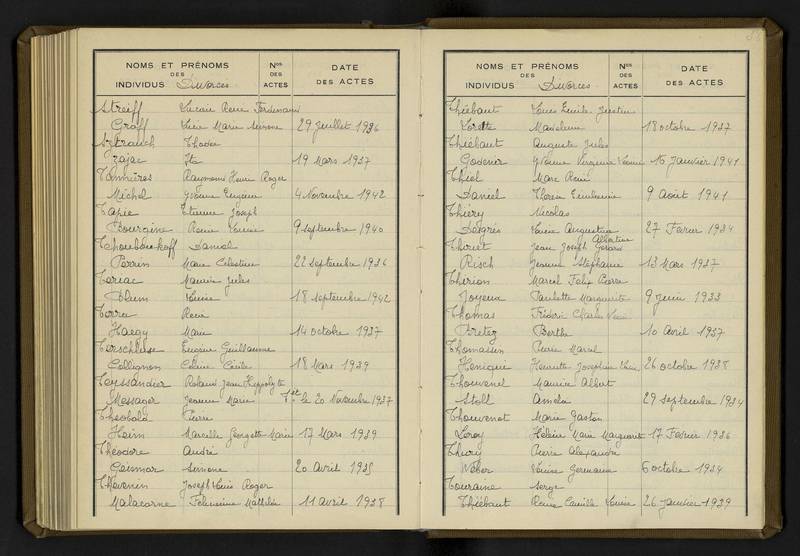 NOMS ET PRÉNOMS
DES
INDIVIDUS Divorces
Nos
DES
ACTES
DATE
DES ACTES
Streiff Lucien René Ferdinand
Graff Lucie Marie Simone 29 Juillet 1936
Sztrauch Chodor
Zajac Ita 19 Mars 1937
Tannières Raymond Henri Roger
Michel Yvonne Eugénie 4 Novembre 1942
Tapie Etienne Joseph
Bourgine Renée Louise 9 septembre 1940
Tchouboukoff Daniel
Perrin Marie Célestine 22 septembre 1936
Teriac Maurice Jules
Blum Louise 18 septembre 1942
Terra René
Haegy Marie 14 octobre 1937
Terschluse Eugène Guillaume
Collignon Céline Cécile 18 Mars 1939
Teyssandier Roland Jean Hippolyte
Messager Jeanne Marie le 20 Novembre 1937
Théobald Pierre
Heim Marcelle Georgette Marie 17 Mars 1939
Théodore André
Geismar Simone 20 Avril 1935
Thévenin Joseph Louis Roger
Malacorne Mathilde 11 avril 1938
NOMS ET PRÉNOMS
DES
INDIVIDUS Divorces
Nos
DES
ACTES
DATE
DES ACTES
Thiébaut Louis Emile Justin
Lorette Madeleine 18 octobre 1937
Thiébaut Auguste Jules
Godener Yvonne Virginie Louise 16 Janvier 1941
Thiel Marc René
Daniel Thérèse 9 Août 1941
Thiéry Nicolas
Desgrés Louise Augustine 27 Février 1934
Thiriet Jean Joseph Albertine Gérard
Risch Jeanne Stéphanie 13 Mars 1937
Thirion Marcel Félix Pierre
Joyeux Paulette Marguerite 9 Juin 1933
Thomas Frédéric Charles Louis
Pretez Berthe 10 Avril 1937
Thomassin Pierre Marcel
Heniqui Henriette Joséphine Marie 26 octobre 1938
Thouvenel Maurice Albert
Stoll Amélia 29 septembre 1934
Thouvenot Marie Gaston
Leroy Hélène Marie Marguerite 17 Février 1936
Thury Pierre Alexandre
Weber Louise Germaine 6 octobre 1934
Touraine Serge
Thiébaut Renée Camille Louise 26 Janvier 1939